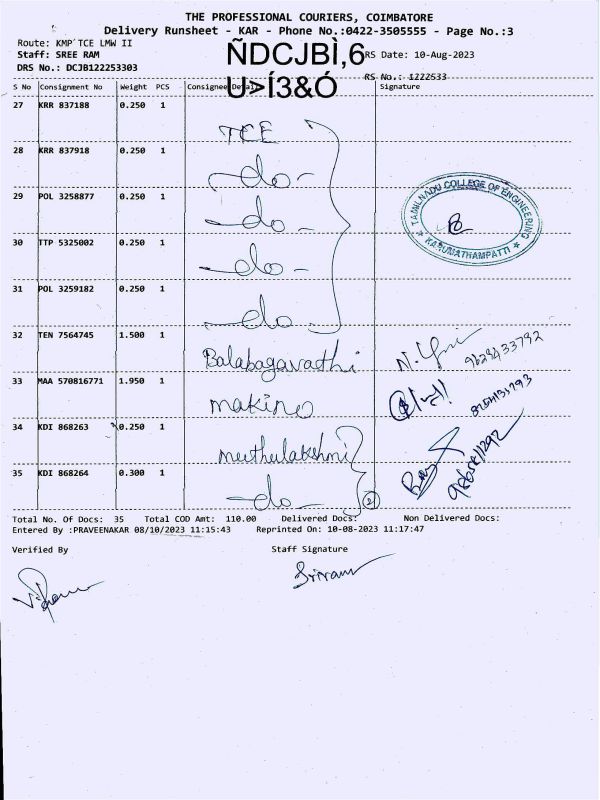 THE PROFESSIONAL COURIERS, COIMBATORE
Delivery Runsheet - KAR - Phone No.:0422-3505555 - Page No.:3
Route: KMP´TCE LMW II
Staff: SREE RAM
ÑDCJBÌ,6
RS Date: 10-Aug-2023
DRS No.: DCJB122253303
U>Í3&Ó
RS No.: 1222533
S No Consignment No Weight PCS Consignee Details Signature
27 KRR 837188 0.250 1 TCE
28 KRR 837918 0.250 1 -do-
29 POL 3258877 0.250 1 -do-
TAMILNADU COLLEGE OF ENGINEERING
★ KARUMATHAMPATTI ★
30 TTP 5325002 0.250 1 -do-
31 POL 3259182 0.250 1 -do-
32 TEN 7564745 1.500 1 Balabagavathi 9629433792
33 MAA 570816771 1.950 1 makino
34 KDI 868263 0.250 1 muthulakshmi
35 KDI 868264 0.300 1 -do- 2
Total No. Of Docs: 35 Total COD Amt: 110.00 Delivered Docs: Non Delivered Docs:
Entered By :PRAVEENAKAR 08/10/2023 11:15:43 Reprinted On: 10-08-2023 11:17:47
Verified By Staff Signature
Sriram